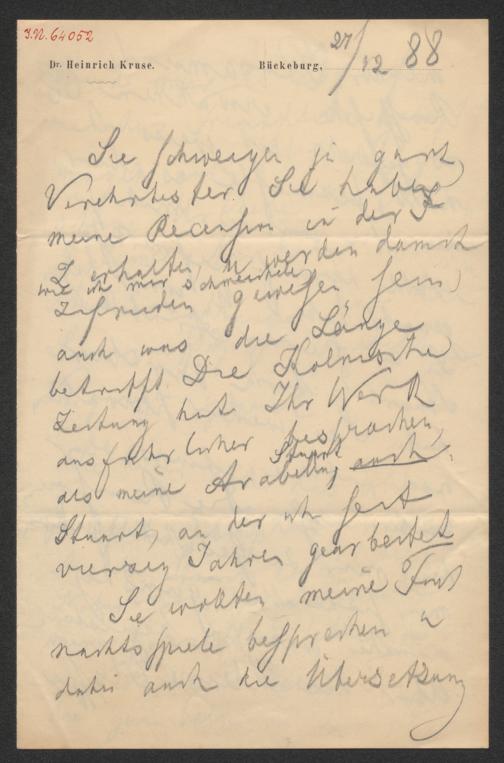 I.N. 64052
Dr. Heinrich Kruse.
Bückeburg, 27/12 88
Sie schweigen ja ganz,
Verehrtester! Sie haben
meine Recension in der K
Z erhalten, u werden damit
wie ich mir schmeichele
zufrieden gewesen sein,
auch was die Länge
betrifft. Die Kölnische
Zeitung hat Ihr Werk
ausführlicher besprochen,
als meine Arabella Stuart auch.
Stuart, an der ich seit
vierzig Jahren gearbeitet
Sie wollten meine Fast
nachtsspiele besprechen u
dabei auch die Übersetzung